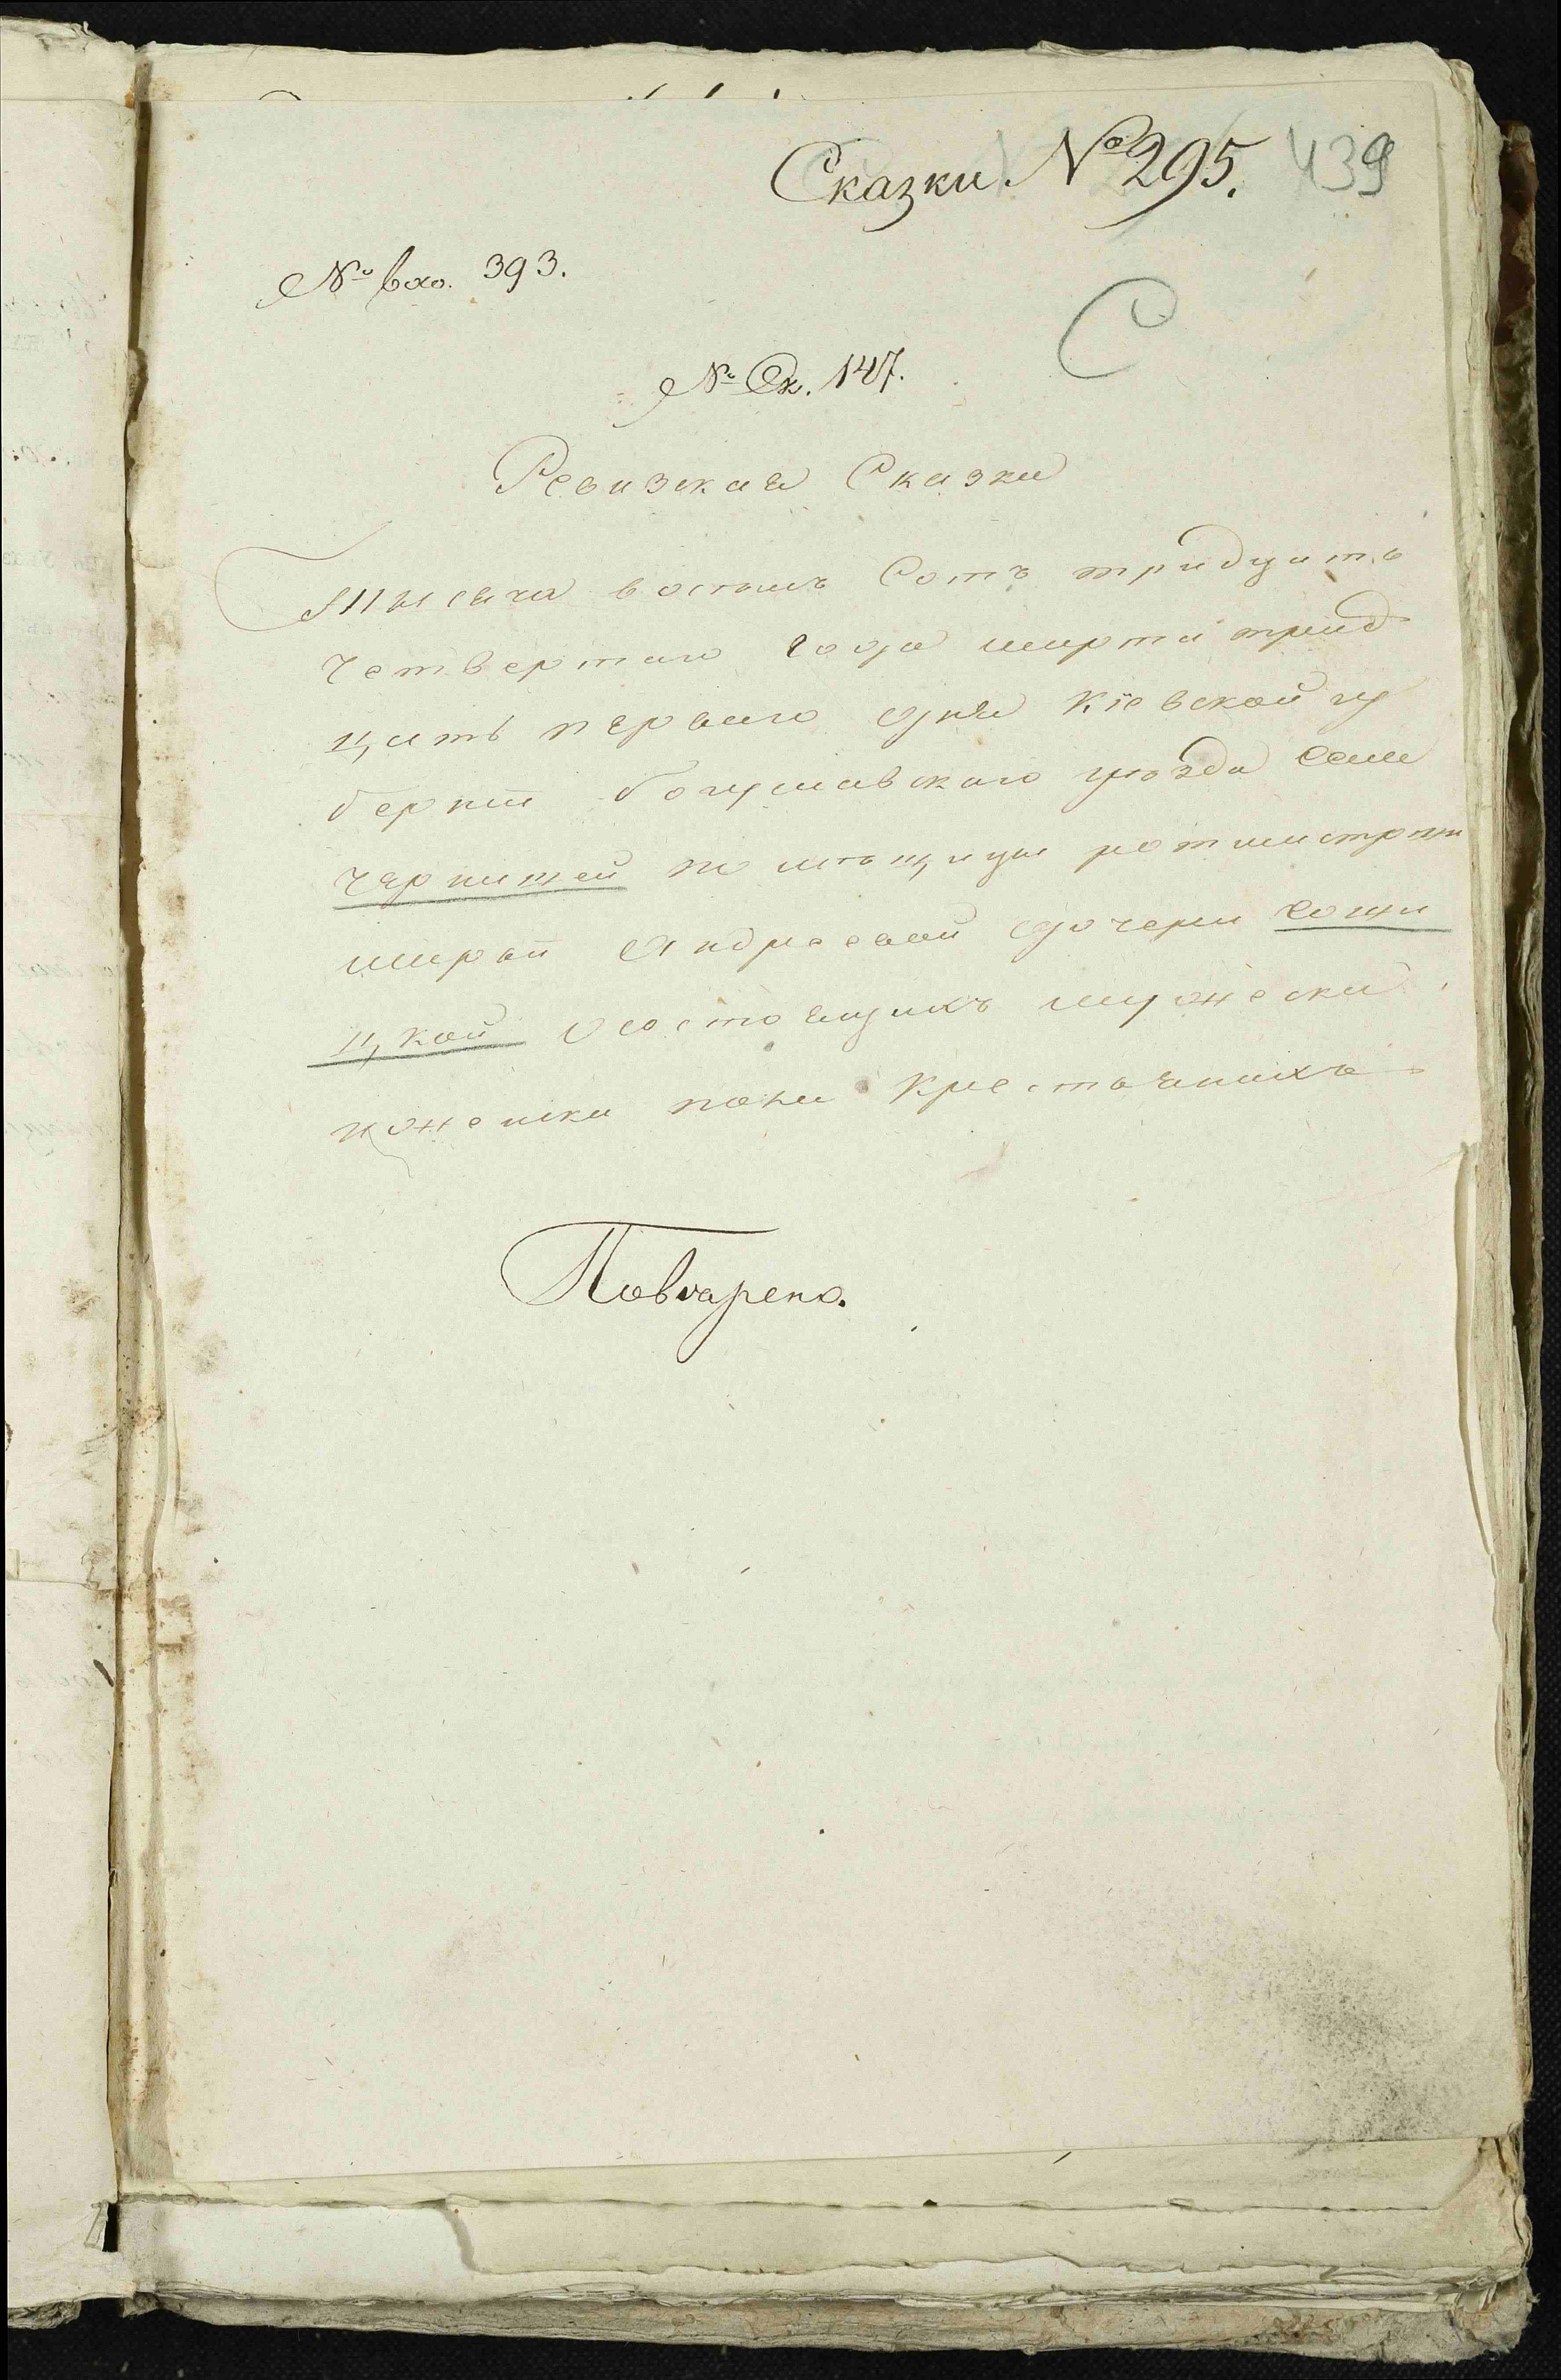 Сказки № 295. 439
№ вхо. 393.
С
№ Ск. 147.
Ревизская Сказка
Тысяча восемь Сотъ тридцать
четвертаго года марта трид
цать перваго дня Кіевской гу
берніи богуславскаго уѣзда Сели
помѣщицы ротмистрши
Андреевой дочери
цкой Осостоящихъ мужеска
и женска пола Крестьянахъ